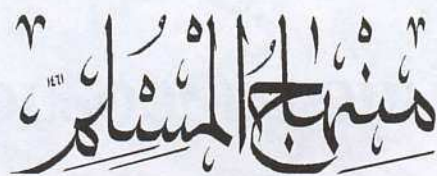 مِنْهَاجُ الْمُسْلِمِ